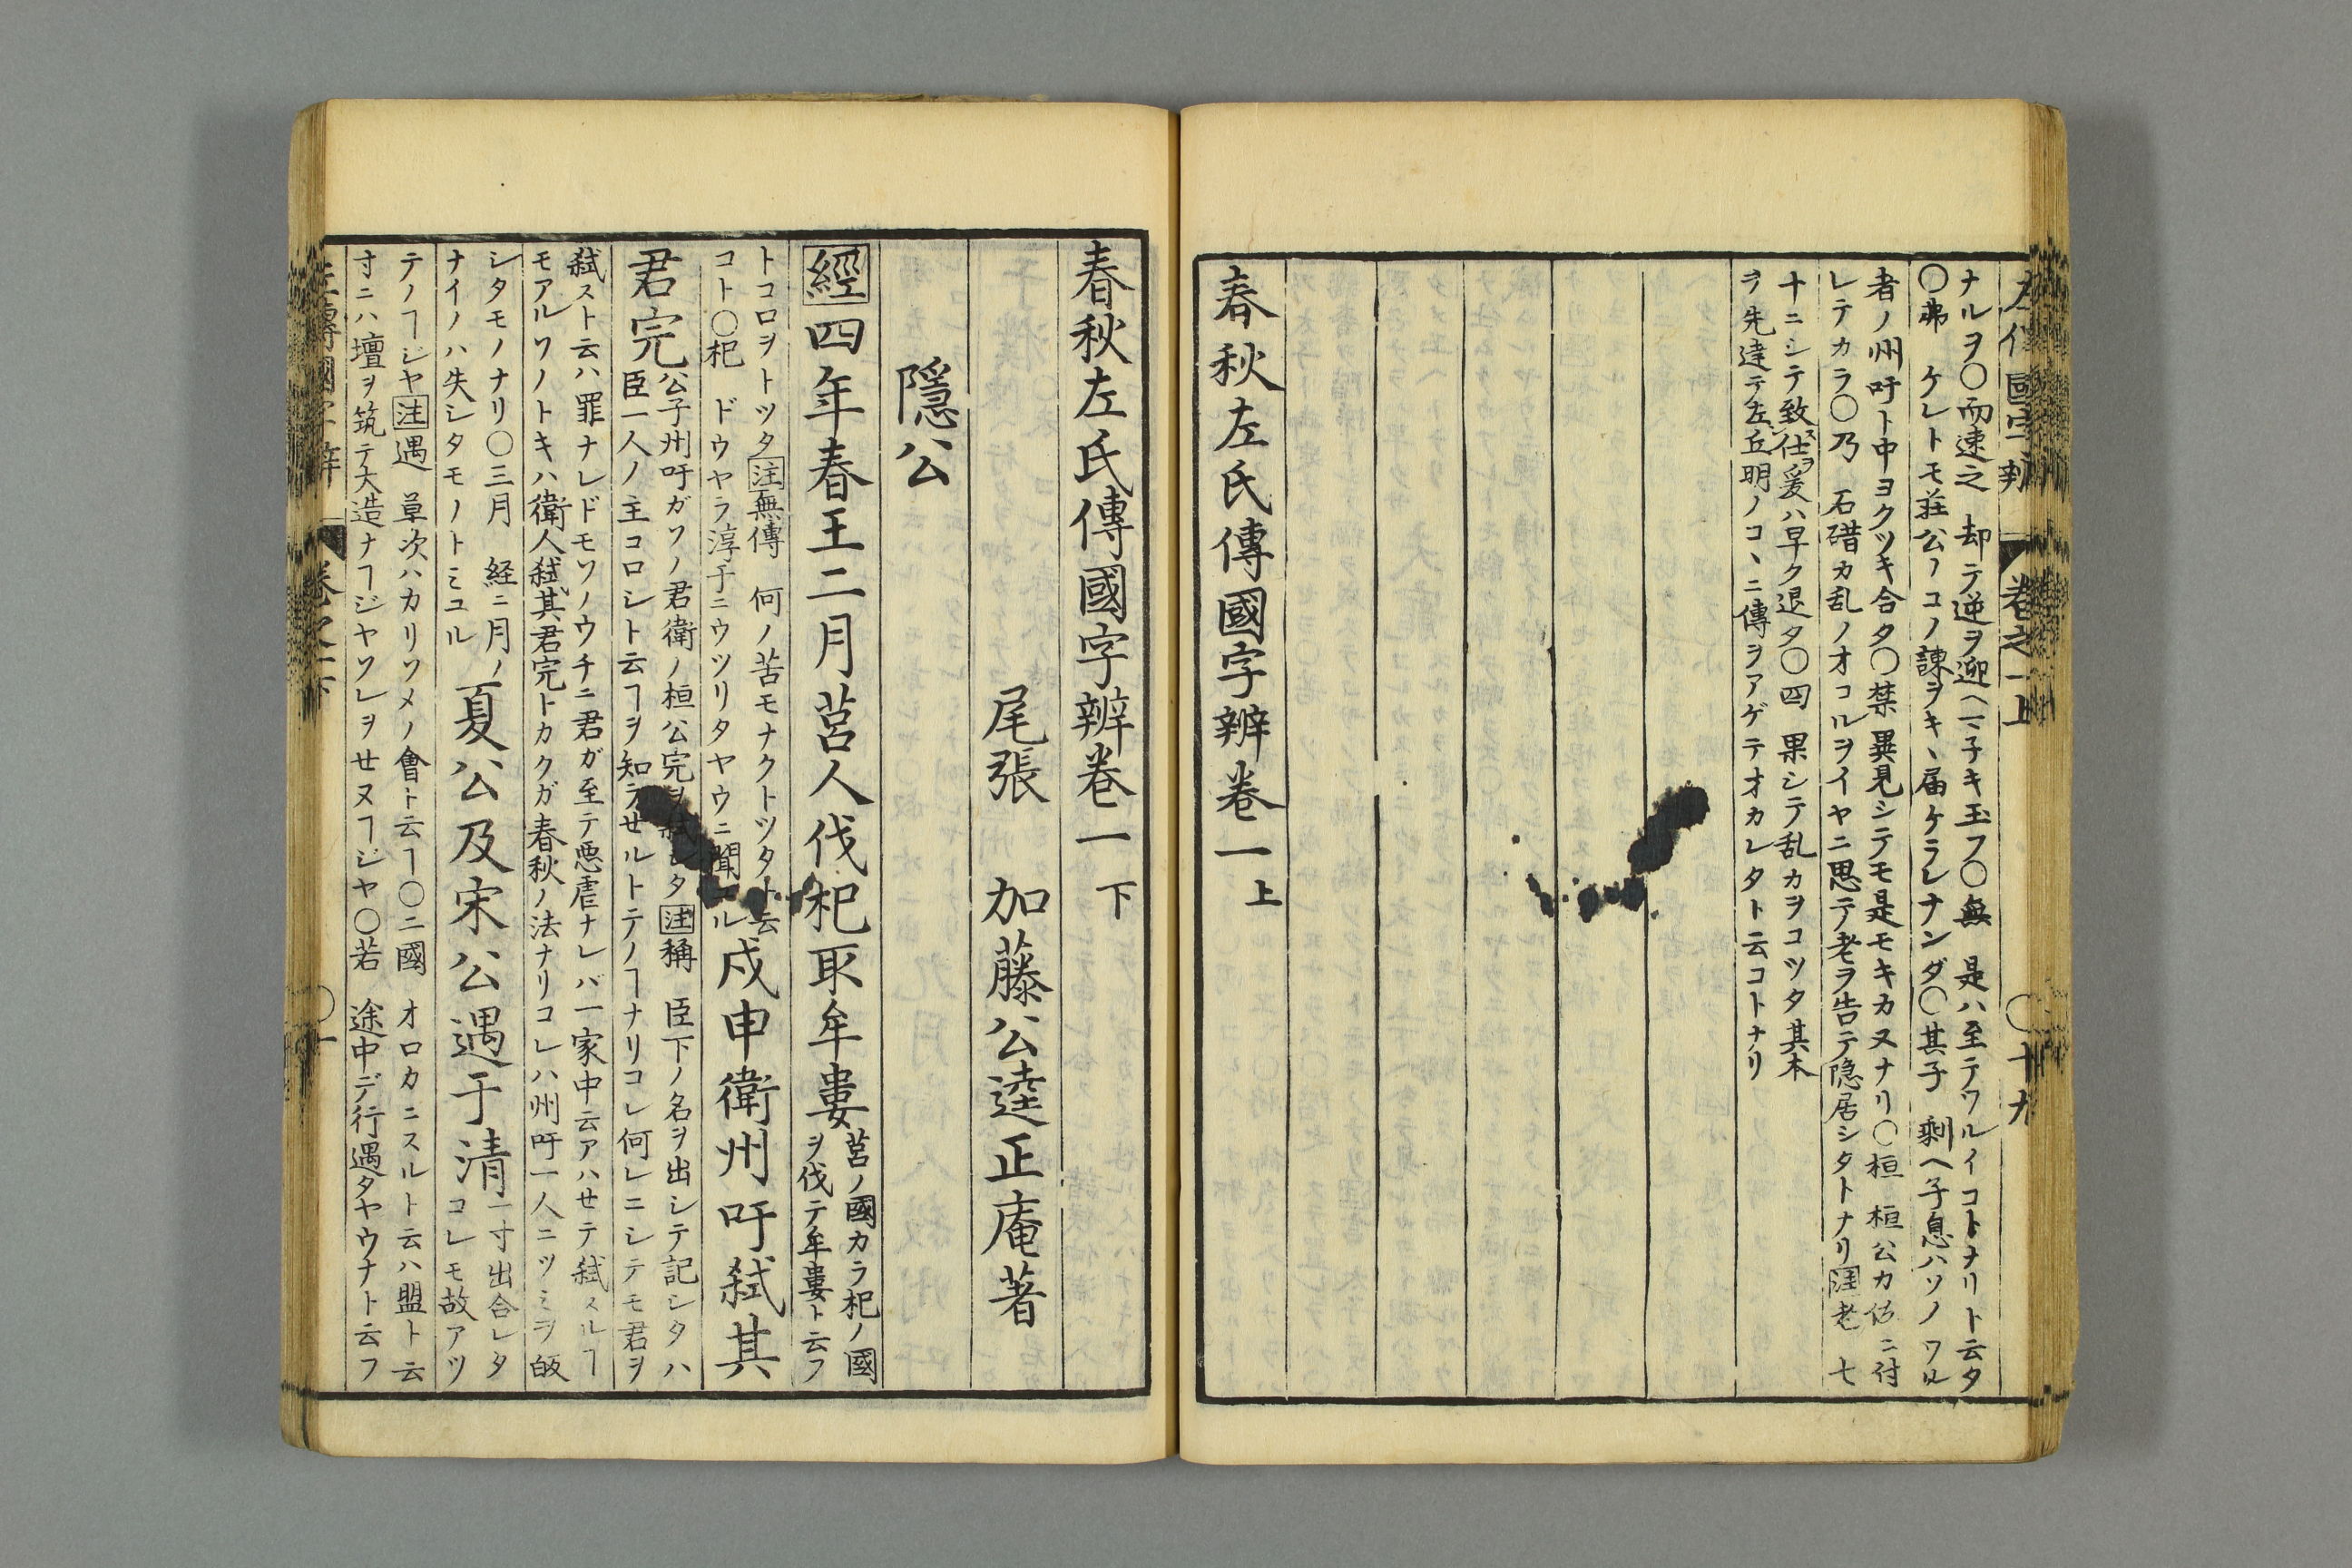 ナルヲ〇而速之　却テ逆ヲ迎ヘマ子キ玉フ〇無　是ハ至テワルイコトナリト云タ
〇弗　ケレトモ荘公ノコノ諫ヲキヽ届ケラレナンダ〇其子　剰ヘ子息ハソノワル
者ノ州吁ト中ヨクツキ合タ〇禁　異見シテモ是モキカヌナリ〇桓　桓公カ位ニ付
レテカラ〇乃　石碏カ乱ノオコルヲイヤニ思テ老ヲ告テ隠居シタトナリ注老　七
十ニシテ致仕スヲ爰ハ早ク退タ〇四　果シテ乱カヲコツタ其木
ヲ先達テ左丘明ノコヽニ傳ヲアゲテオカレタト云コトナリ
春秋左氏傳國字辨巻一上
巻之一上
〇十九
春秋左氏傳國字辨巻一下
尾張　加藤公逵正庵著
隱公
經四年春王二月莒人伐杞取牟婁
莒ノ國カラ杞ノ國
ヲ伐テ牟婁ト云フ
トコロヲトツタ注無傳　何ノ苦モナクトツタト云
コト〇杞　ドウヤラ淳于ニウツリタヤウニ聞ル
戍申衛州吁弑其
君完
公子州吁ガワノ君衛ノ桓公完ヲ弑シタ注稱　臣下ノ名ヲ出シテ記シタハ
臣一人ノ主コロシト云ヿヲ知ラセルトテノヿナリコレ何レニシテモ君ヲ
弑スト云ハ罪ナレドモソノウチニ君ガ至テ悪虐ナレバ一家中云アハせテ弑スルヿ
モアルソノトキハ衛人弑其君完トカクガ春秋ノ法ナリコレハ州吁一人ニツミヲ皈
シタモノナリ〇三月　経ニ月ノ
ナイノハ失シタモノトミユル
夏公及宋公遇于清
一寸出合レタ
コレモ故アツ
テノヿジヤ注遇　草次ハカリソメノ會ト云ヿ〇二國　オロカニスルト云ハ盟ト云
寸ニハ壇ヲ筑テ大造ナヿジヤソレヲせヌヿジヤ〇若　途中デ行遇タヤウナト云フ